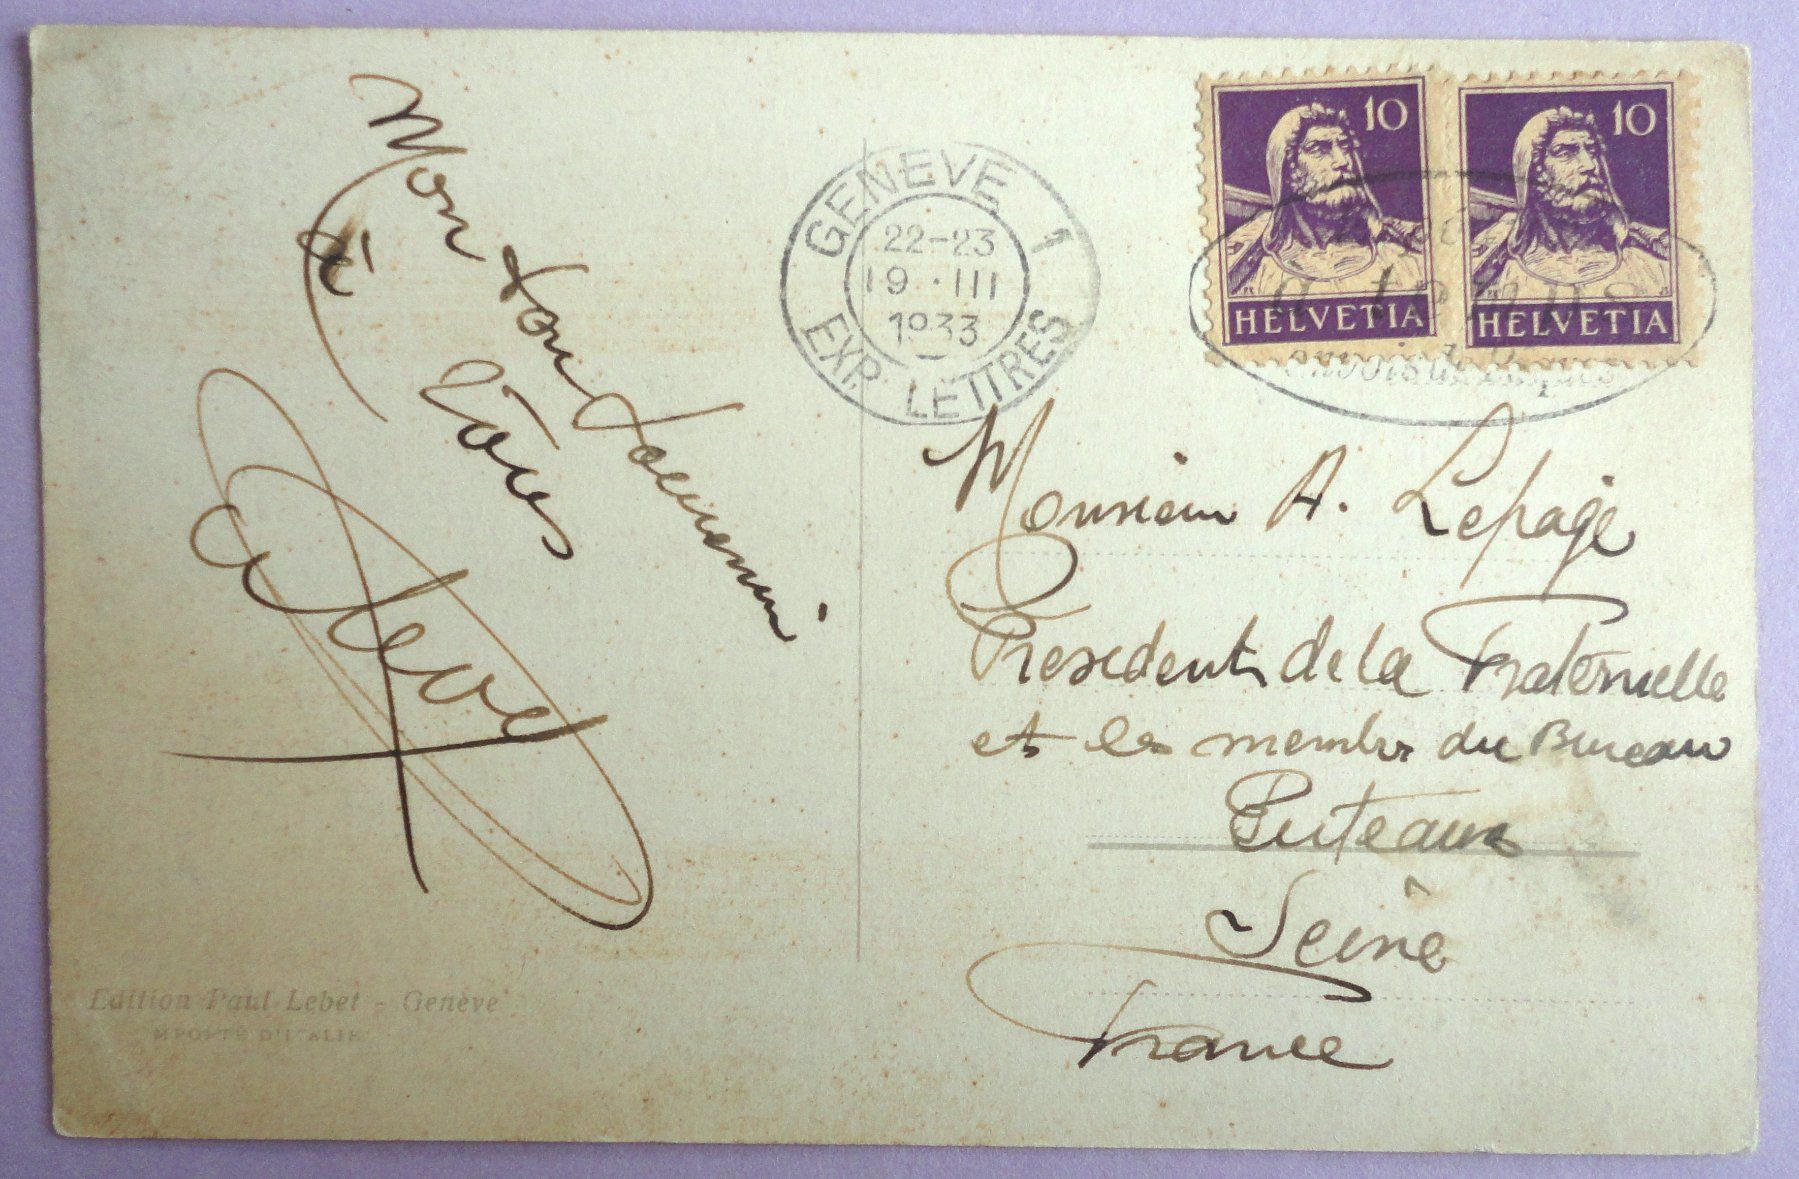 Mon bon souvenir
à tous
GENEVE 1
22-23
19·III
1933
EXP. LETTRES
10
HELVETIA
10
HELVETIA
à temps
Monsieur A. Lepage
President de la Fraternelle
et les membres du Bureau
Puteaux
Seine
France
Edition Paul Lebet - Genève
IMPORTÉ D'ITALIE